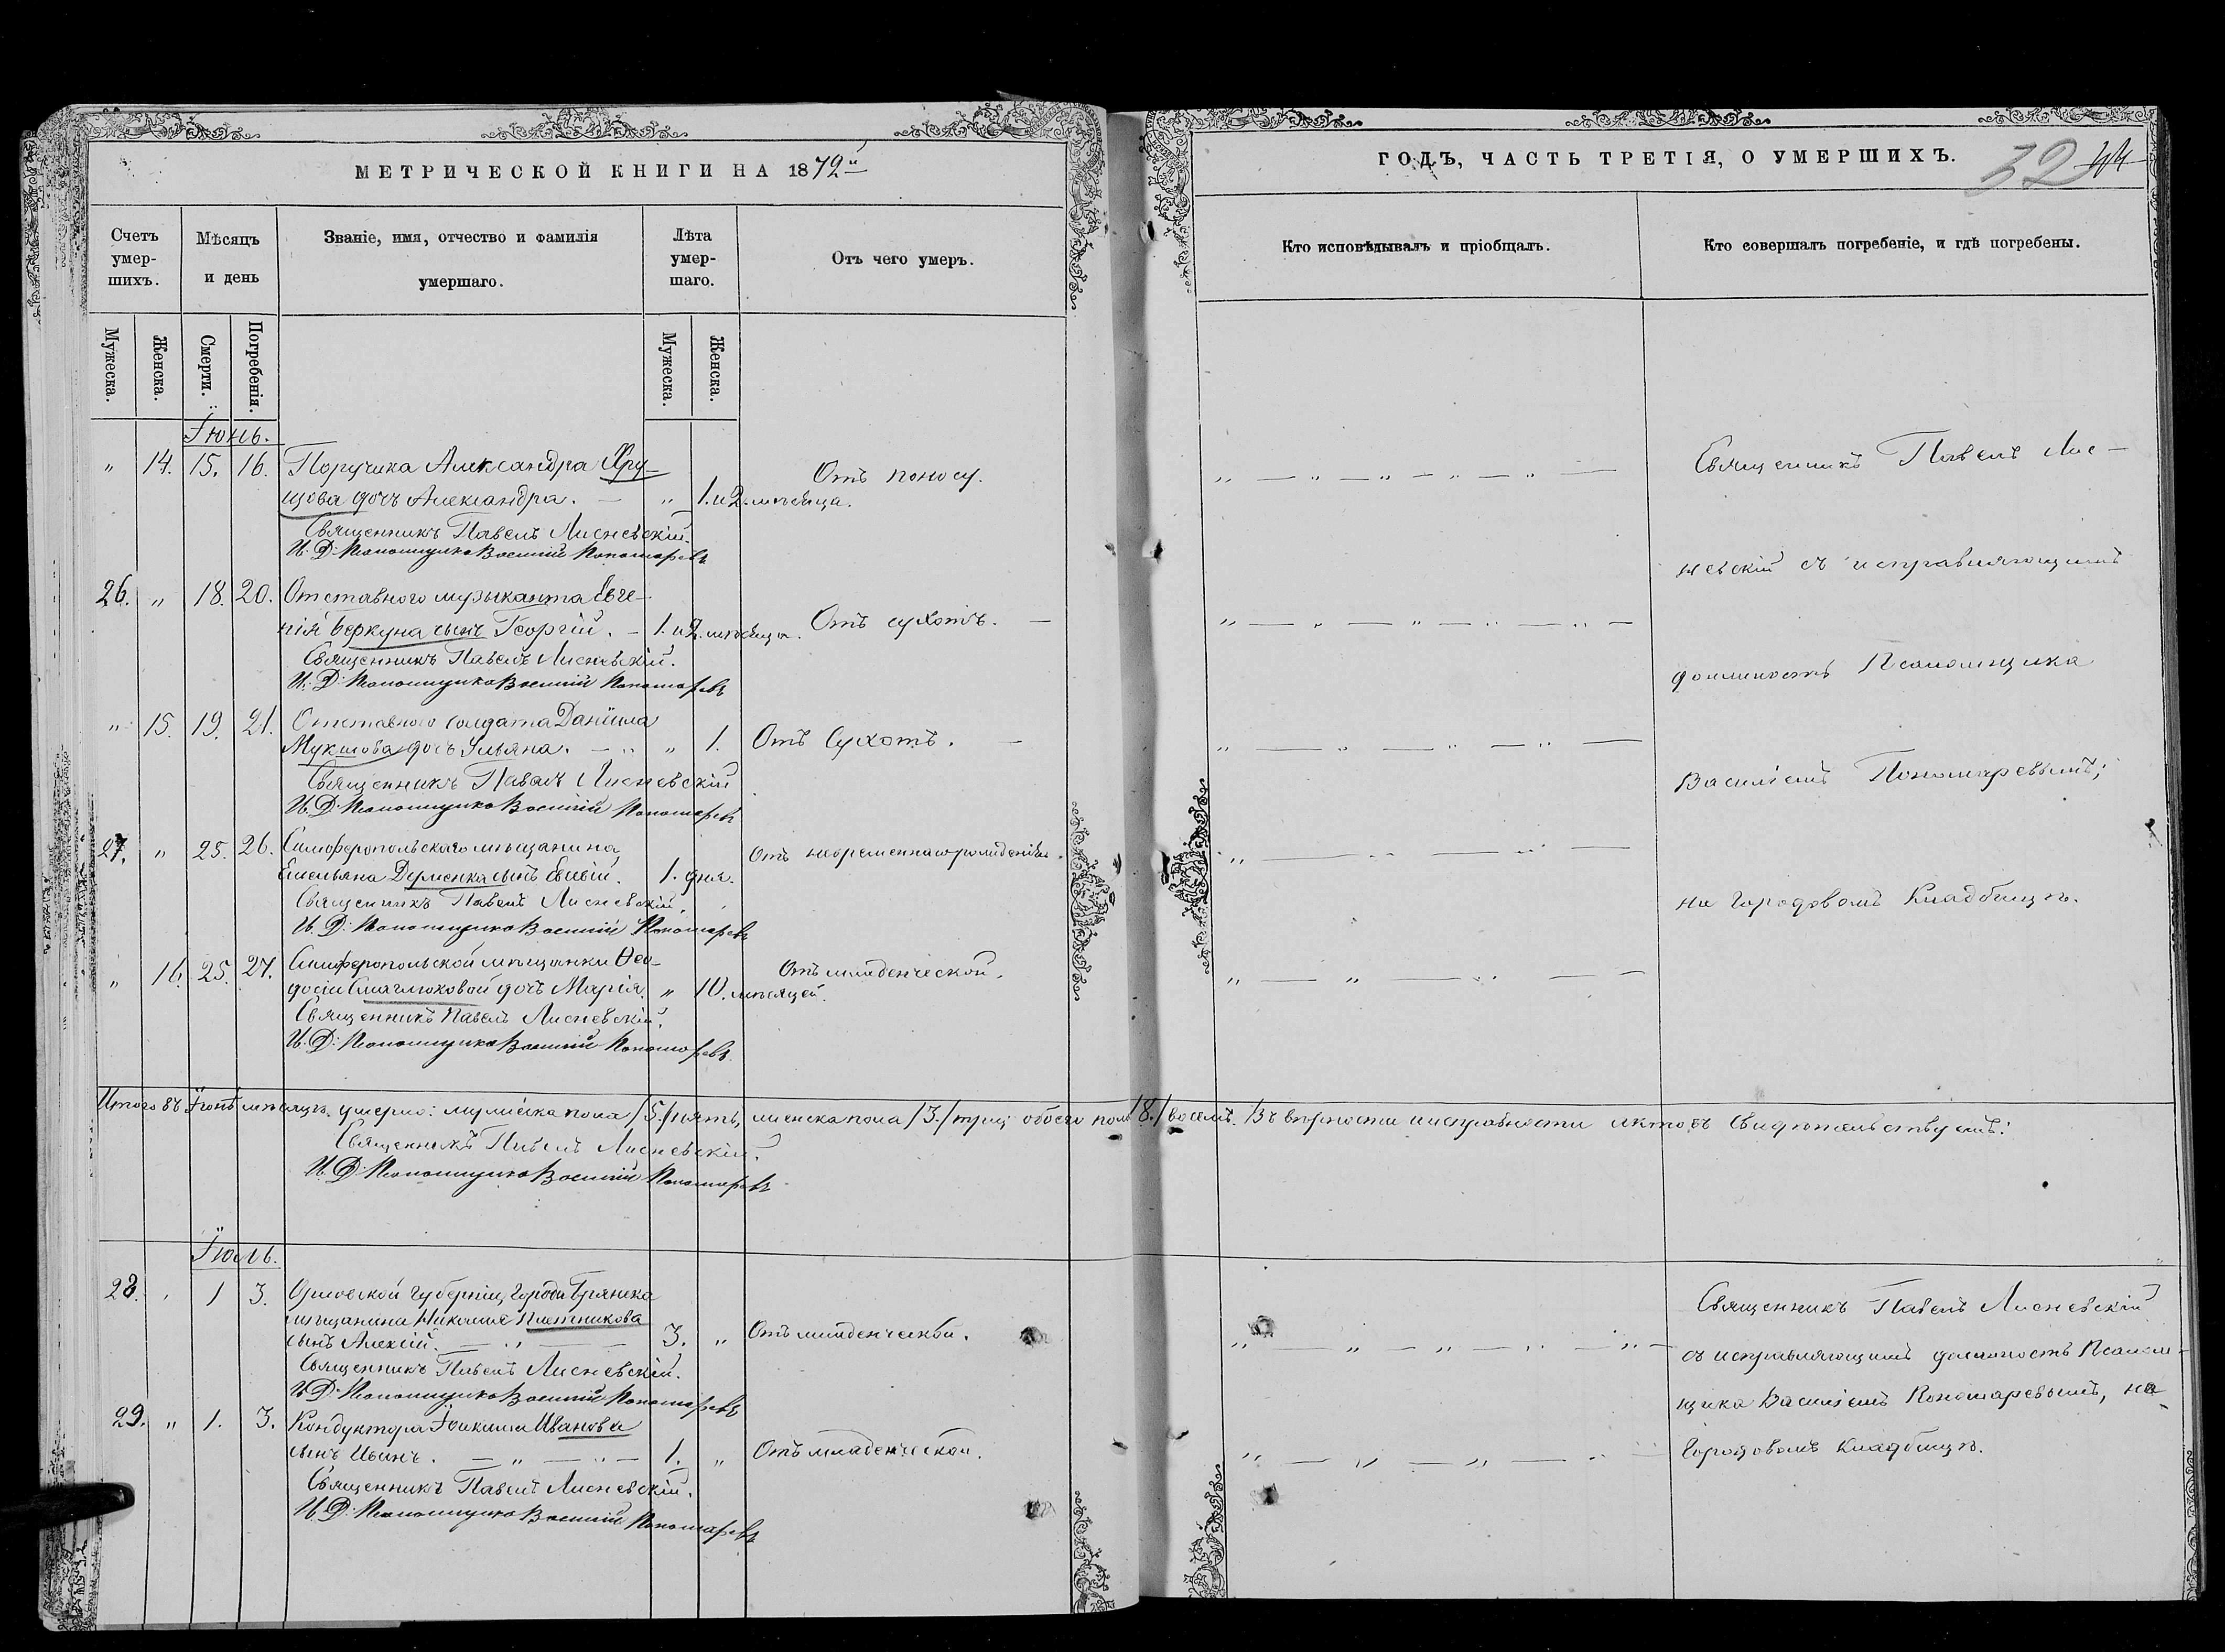 МЕТРИЧЕСКОЙ КНИГИ НА 1872й
Счетъ умер-шихъ.
Мѣсяцъ и день
Званіе, имя, отчество и фамилія умершаго.
Лѣта умер-шаго.
Отъ чего умеръ.
Мужеска.
Женска.
Смерти.
Погребенія.
Мужеска.
Женска.
Іюнь.
" 14. 15. 16. Поручика Александра Хру-
щова дочь Александра. — " 1. и 2. мѣсяца. Отъ поносу.
Священникъ Павелъ Лисневскій.
И. Д. Псаломщика Василій Пономаревъ
26. " 18. 20. Отставного музыканта Евге-
нія Беркуна сынъ Георгій. — 1. и 2. мѣсяца. Отъ сухотъ. —
Священникъ Павелъ Лисневскій.
И. Д. Псаломщика Василій Пономаревъ
" 15. 19. 21. Отставного солдата Даніила
дочь Ульяна. — " " 1. Отъ Сухотъ. —
Священникъ Павелъ Лисневскій
И. Д. Псаломщика Василій Пономаревъ
27. " 25. 26. Симферопольскаго мѣщанина
Емельяна сынъ 1. дня. Отъ невременнаго рожденія.
Священникъ Павелъ Лисневскій.
И. Д. Псаломщика Василій Пономаревъ
" 16. 25. 27. Симферопольской мѣщанки Ѳео-
досіи дочь Марія. " 10. мѣсяцей. Отъ младенческой.
Священникъ Павелъ Лисневскій.
И. Д. Псаломщика Василій Пономаревъ
Итого въ Іюнѣ мѣсяцѣ умерло: мужеска пола /5./ пять, женска пола /3./ три, обоего пола /8./ восемь. Въ вѣрности и исправности актовъ свидѣтельствуемъ:
Священникъ Павелъ Лисневскій.
И. Д. Псаломщика Василій Пономаревъ
Іюль.
28. " 1 3. Орловской губерніи, города Брянска
мѣщанина Николая Плотникова
сынъ Алексій. — " — 3. " Отъ младенческой.
Священникъ Павелъ Лисневскій.
И. Д. Псаломщика Василій Пономаревъ
29. " 1. 3. Кондуктора Іоакима Иванова
сынъ Иванъ. — " — " — 1. " Отъ младенческой.
Священникъ Павелъ Лисневскій.
И. Д. Псаломщика Василій Пономаревъ
ГОДЪ, ЧАСТЬ ТРЕТІЯ, О УМЕРШИХЪ.
32 44
Кто исповѣдывалъ и пріобщалъ.
Кто совершалъ погребеніе, и гдѣ погребены.
Священникъ Павелъ Лис-
невскій съ исправляющимъ
должность Псаломщика
Василіемъ Пономаревымъ;
на городовомъ Кладбищѣ.
Священникъ Павелъ Лисневскій
съ исправляющимъ должность Псалом-
щика Василіемъ Пономаревымъ, на
Городовомъ Кладбищѣ.